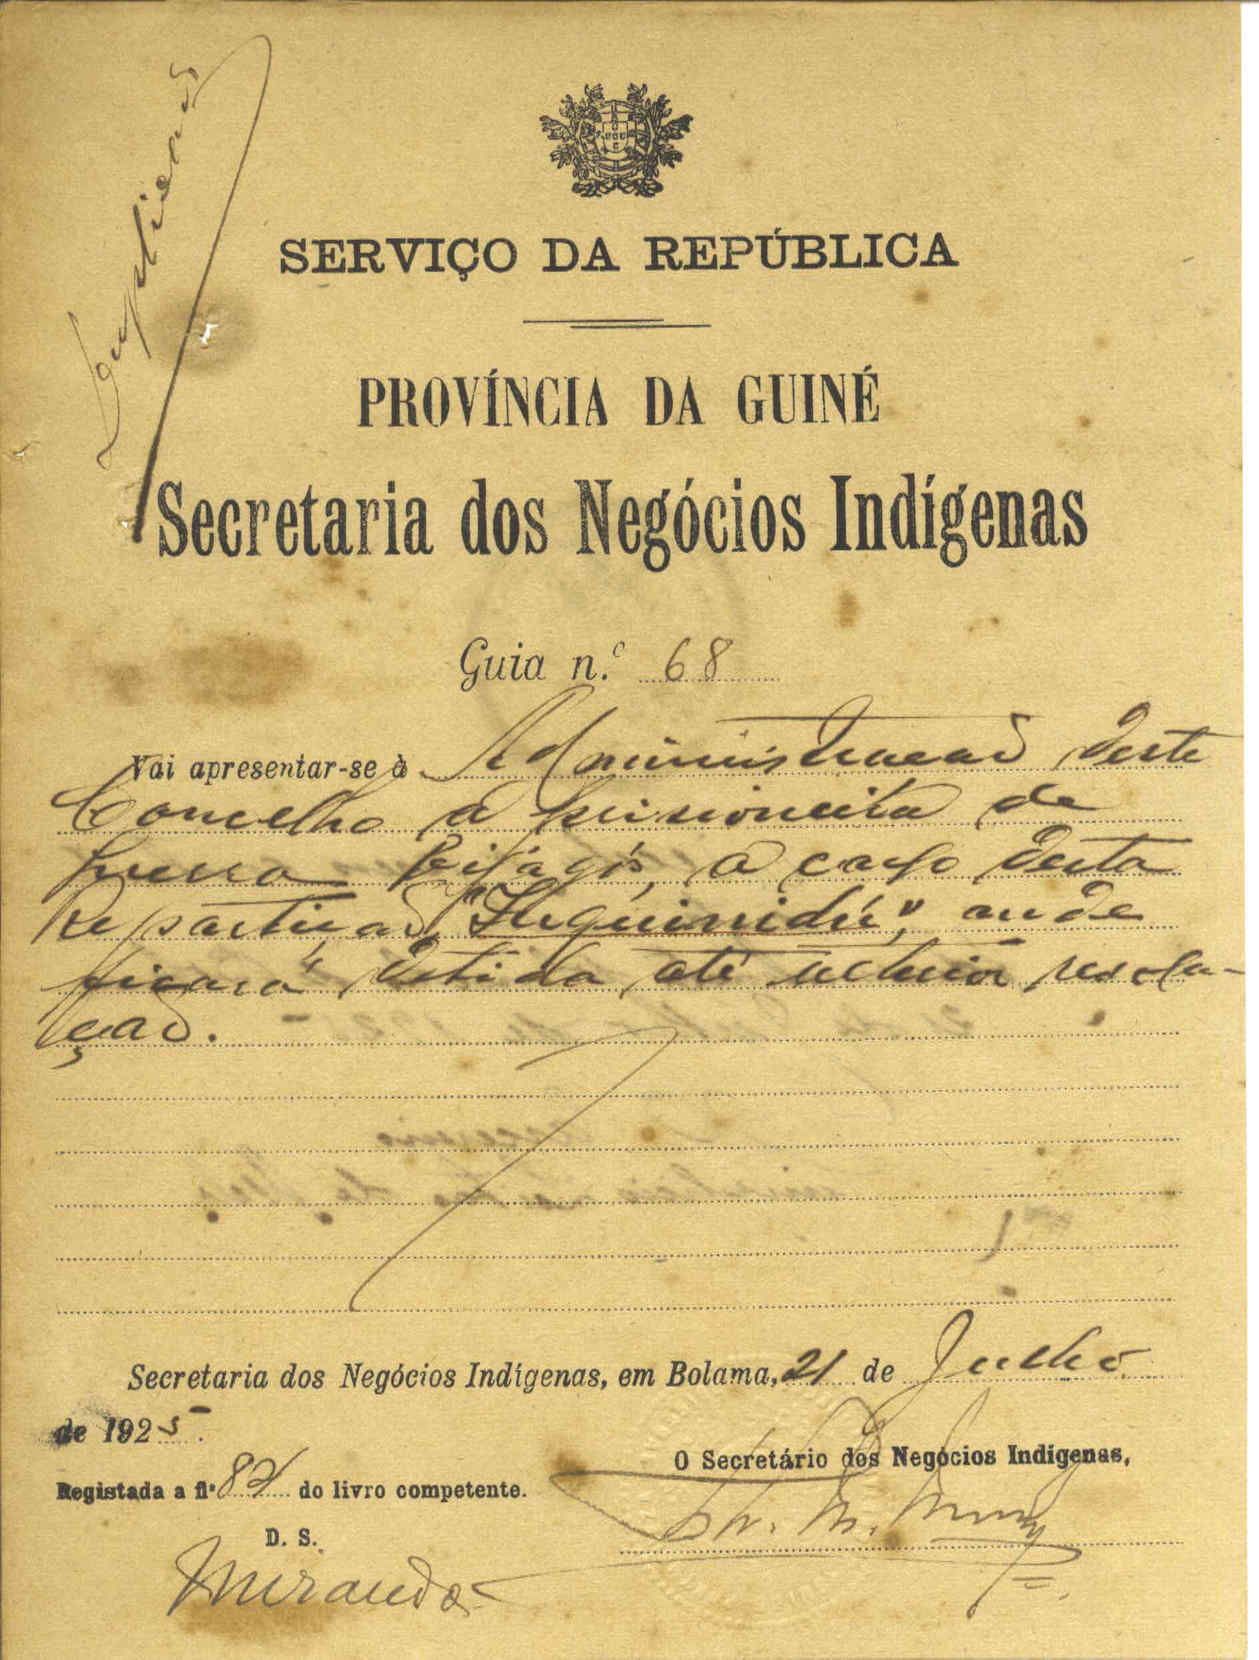 Duplicado
SERVIÇO DA REPÚBLICA
PROVÍNCIA DA GUINÉ
Secretaria dos Negócios Indígenas
Guia n.º 68
Vai apresentar-se à Administracao deste
Concelho a prisioneira de
guerra Bijágós, a cargo desta
Repartiçao, onde
ficará detida até ulterior resolu-
çao.
Secretaria dos Negócios Indígenas, em Bolama, 21 de Julho
de 1925.
Registada a fl. do livro competente.
O Secretário dos Negócios Indigenas,
D. S.
Miranda